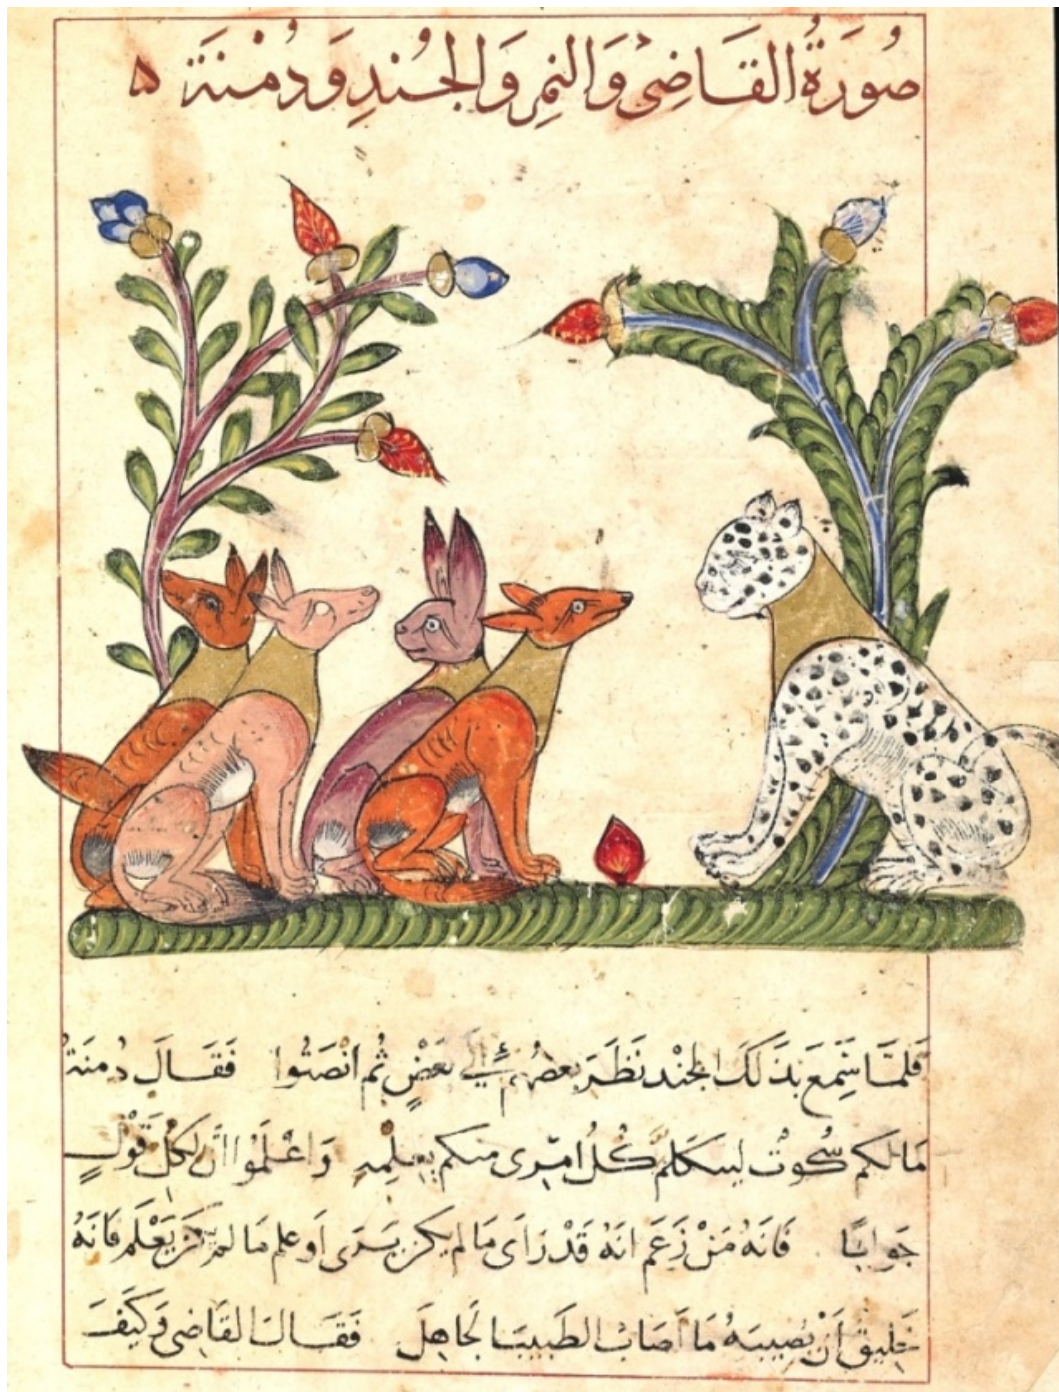 صُورَةُ القَاضِى وَالنمِرِ وَالجُندِ وَدُمْنَة ه
فَلمَّا سَمِعَ بذَلكَ الجُنْد نَظَرَ بعضهُم إلي بَعَضٍ ثُم انْصَتُوا فَقَال دُمنَةُ
مَا لكم سُكوتْ ليتكلمَّ كُلُ امرِى منكم بعِلمِهِ وَاعْلَمَوُا انَّ لكُلِ قَوْلٍ
جَوابًا فَانَهُ مَنْ زَعَم انَهُ قَدْ رَاى مَا لم يكن يَرَى اَو علم مَا لم يكن يَعْلَم فَانَهُ
خَلِيقٌ اَنْ يُصِيبَهُ مَا اَصَابَ الطَبيبَ الجَاهِلَ فَقَالَ القَاضِى وَكَيَفَ